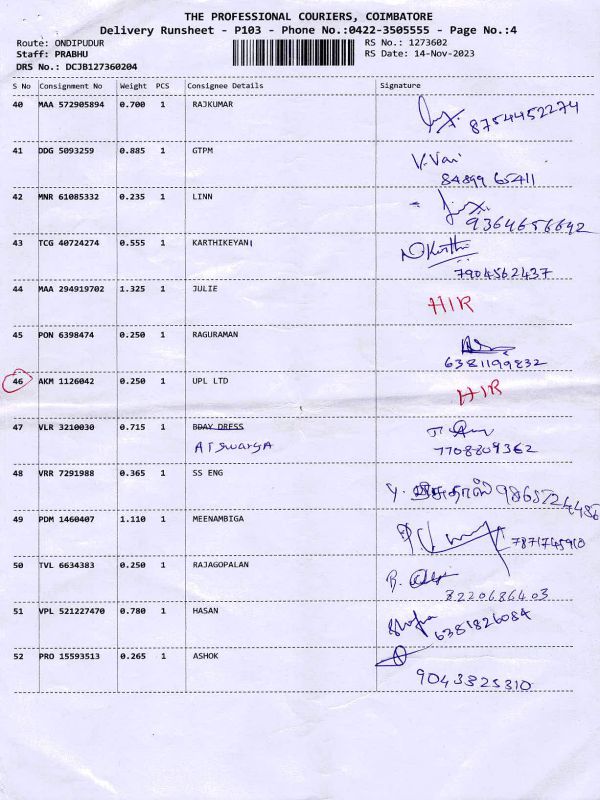 THE PROFESSIONAL COURIERS, COIMBATORE
Delivery Runsheet - P103 - Phone No.:0422-3505555 - Page No.:4
Route: ONDIPUDUR RS No.: 1273602
Staff: PRABHU RS Date: 14-Nov-2023
DRS No.: DCJB127360204
S No Consignment No Weight PCS Consignee Details Signature
40 MAA 572905894 0.700 1 RAJKUMAR
8754452274
41 DDG 5093259 0.885 1 GTPM V.Vai
84899 65411
42 MNR 61085332 0.235 1 LINN
9364656642
43 TCG 40724274 0.555 1 KARTHIKEYAN
7904562437
44 MAA 294919702 1.325 1 JULIE HIR
45 PON 6398474 0.250 1 RAGURAMAN
6381199832
46 AKM 1126042 0.250 1 UPL LTD HIR
47 VLR 3210030 0.715 1 BDAY DRESS
AISWARYA 7708809362
48 VRR 7291988 0.365 1 SS ENG
49 PDM 1460407 1.110 1 MEENAMBIGA
7871745910
50 TVL 6634383 0.250 1 RAJAGOPALAN
8220686403
51 VPL 521227470 0.780 1 HASAN
6381826084
52 PRO 15593513 0.265 1 ASHOK
9043325310